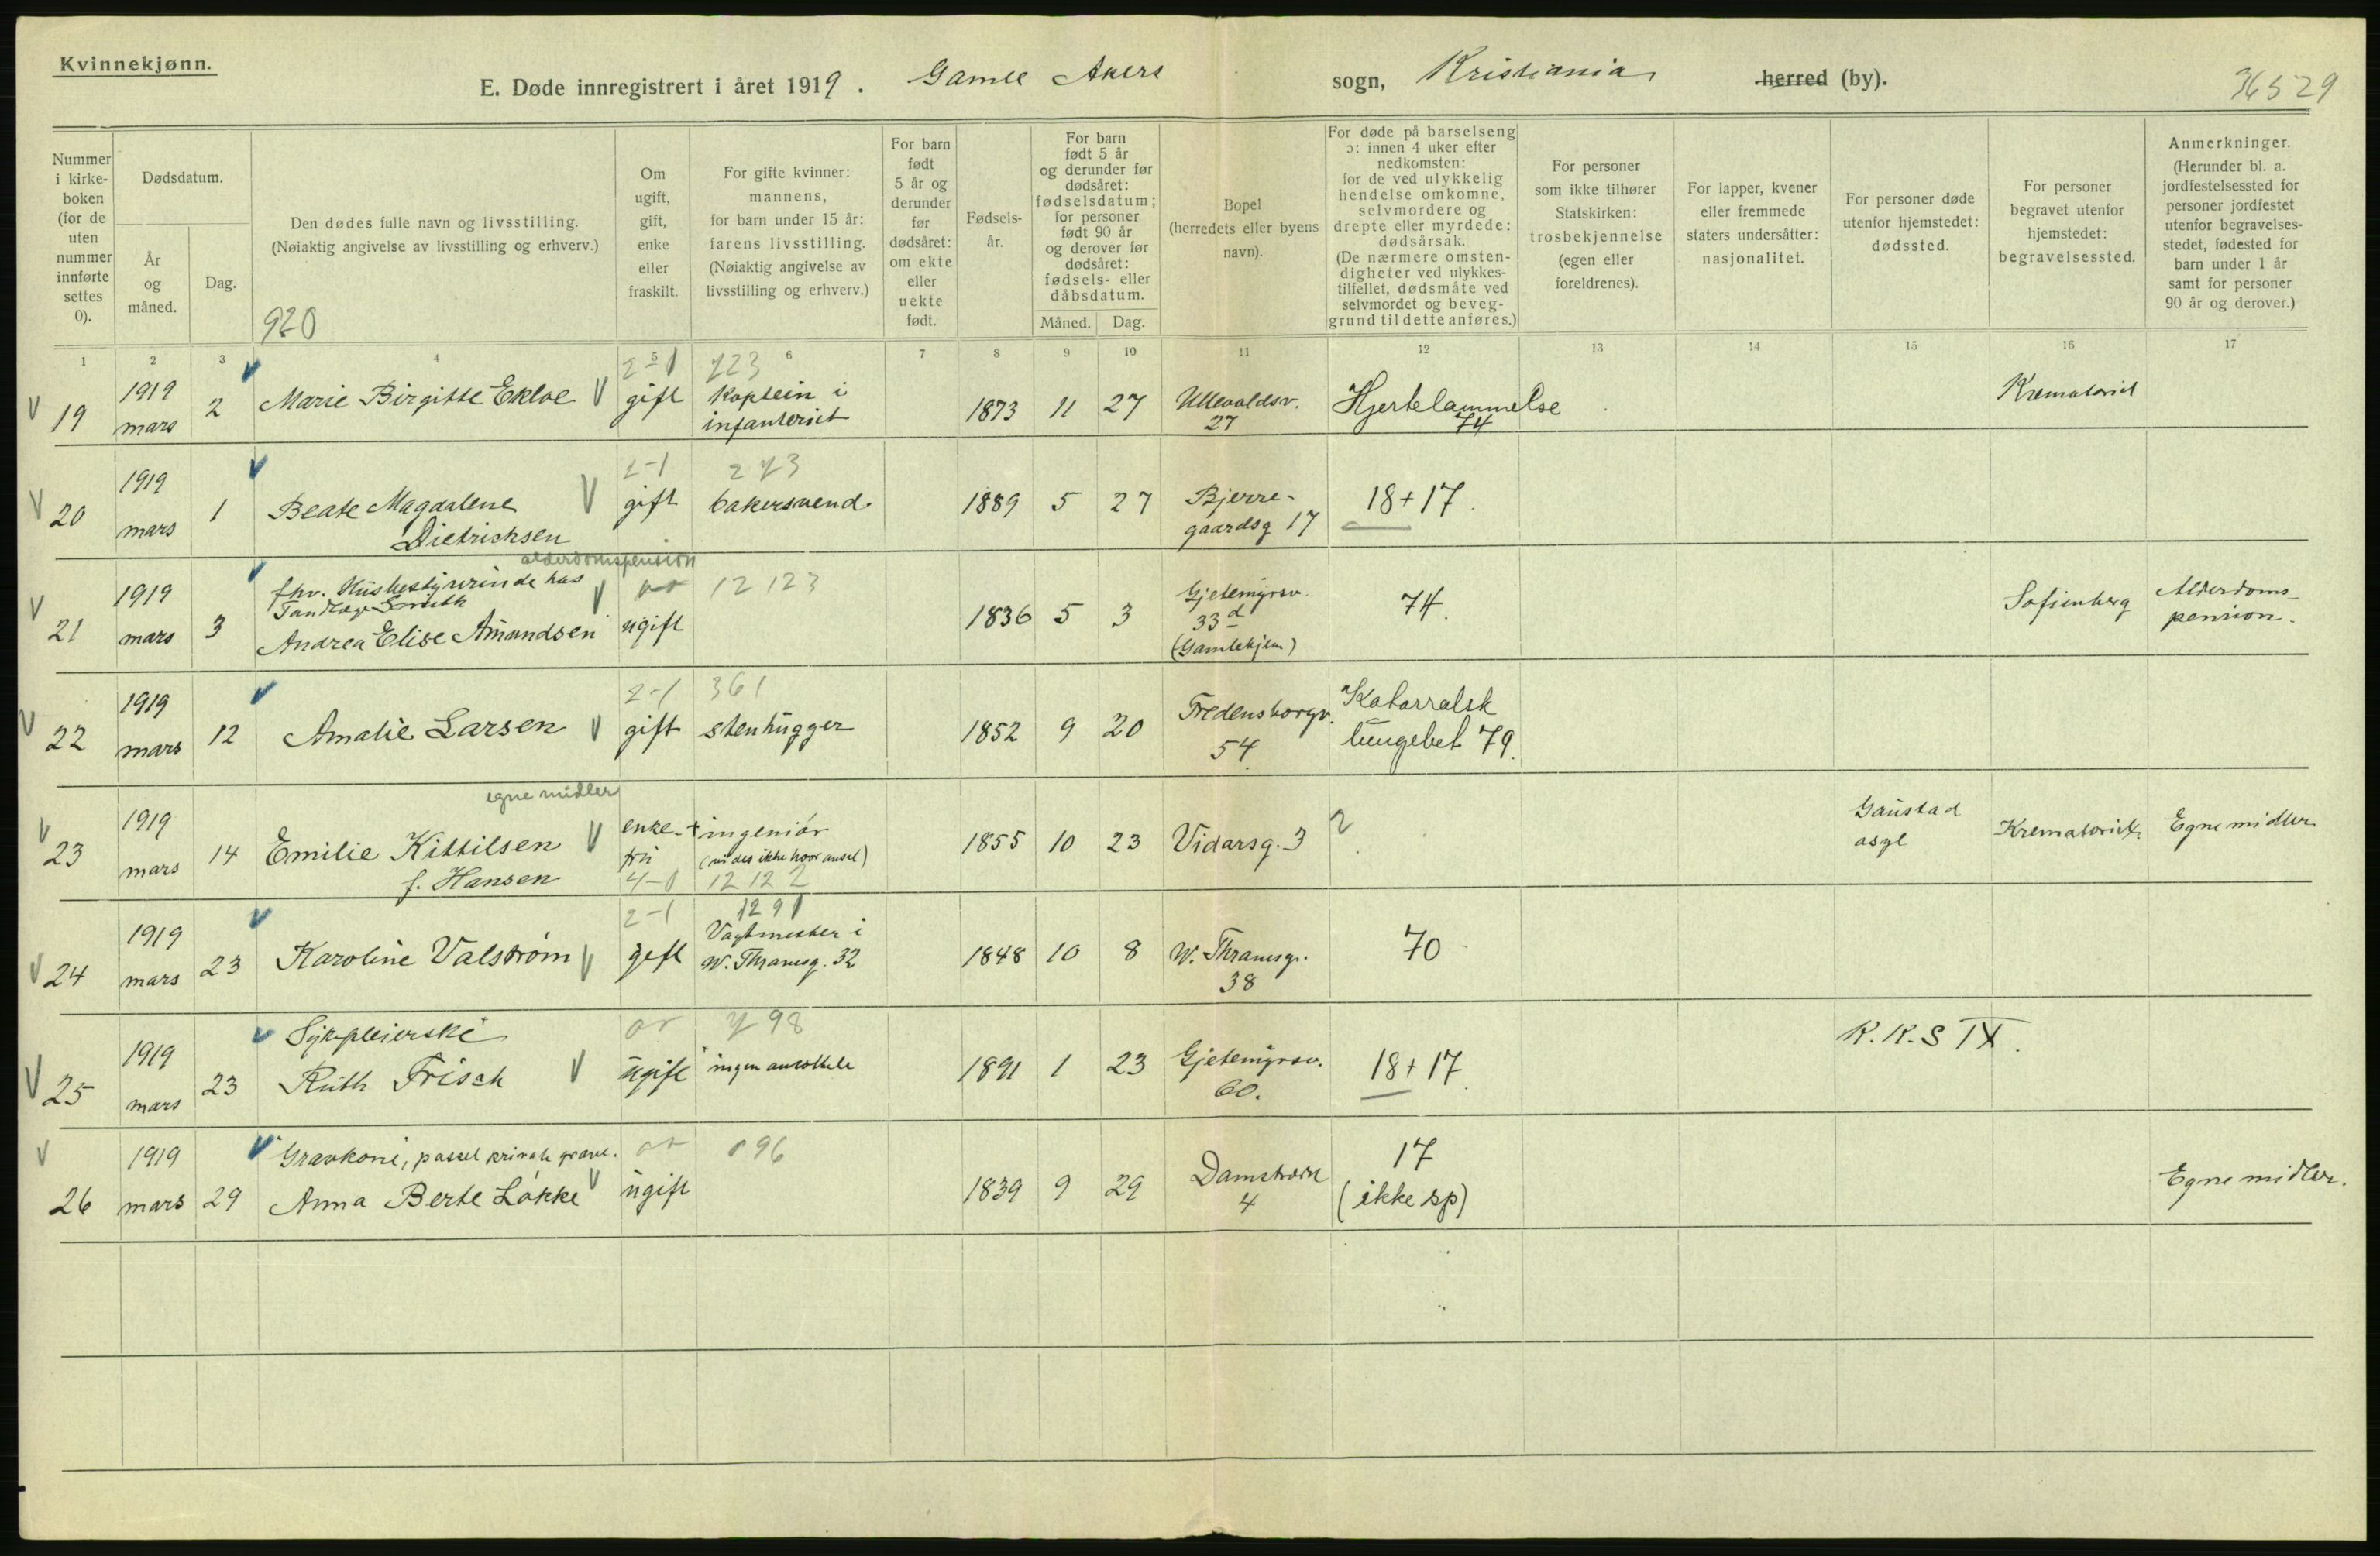 Kvinnekjønn.
E. Døde innregistrert i året 1919. Gamle Akers sogn, Kristiania herred (by).
36529
Nummer i kirke-boken (for de uten nummer innførte settes 0).
Dødsdatum.
År og måned.
Dag.
Den dødes fulle navn og livsstilling.
(Nøiaktig angivelse av livsstilling og erhverv.)
920
Om ugift, gift, enke eller fraskilt.
For gifte kvinner: mannens, for barn under 15 år: farens livsstilling. (Nøiaktig angivelse av livsstilling og erhverv.)
For barn født 5 år og derunder før dødsåret: om ekte eller uekte født.
Fødsels-år.
For barn født 5 år og derunder før dødsåret: fødselsdatum; for personer født 90 år og derover før dødsåret: fødsels- eller dåbsdatum.
Måned. Dag.
Bopel (herredets eller byens navn).
For døde på barselseng ɔ: innen 4 uker efter nedkomsten: for de ved ulykkelig hendelse omkomne, selvmordere og drepte eller myrdede: dødsårsak. (De nærmere omsten-digheter ved ulykkes-tilfellet, dødsmåte ved selvmordet og beveg-grund til dette anføres.)
For personer som ikke tilhører Statskirken: trosbekjennelse (egen eller foreldrenes).
For lapper, kvener eller fremmede staters undersåtter: nasjonalitet.
For personer døde utenfor hjemstedet: dødssted.
For personer begravet utenfor hjemstedet: begravelsessted.
Anmerkninger. (Herunder bl. a. jordfestelsessted for personer jordfestet utenfor begravelses-stedet, fødested for barn under 1 år samt for personer 90 år og derover.)
1 2 3 4 5 6 7 8 9 10 11 12 13 14 15 16 17
2-1 723
19 1919 mars 2 Marie Birgitte Ekloe gift kaptein i infanteriet 1873 11 27 Ullevaldsv. 27 Hjertelammelse 74 Krematoriet
2-1 273
20 1919 mars 1 Beate Magdalene Dietrichsen gift bakersvend. 1889 5 27 Bjerre-gaardsg 17 18+17.
alderdomspension
12 123
21 1919 mars 3 fhv. Husbestyrerinde hos Tandlæge Smith
Andrea Elise Amundsen ugift 1836 5 3 Gjetemyrsv. 33d (Gamlehjem) 74. Sofienberg Alderdoms-pension.
2-1 361
22 1919 mars 12 Amalie Larsen gift stenhugger 1852 9 20 Fredensborgv. 54 Katarralsk lungebet 79.
egne midler
23 1919 mars 14 Emilie Kittilsen f. Hansen enke-fru + ingeniør (vides ikke hvor ansat) 1855 10 23 Vidarsg. 3 Gaustad asyl Krematoriet. Egne midler
4-0 12 12 2
2-1 1291
24 1919 mars 23 Karoline Valstrøm gift Vagtmester i W. Thranesg. 32 1848 10 8 W. Thranesg. 38 70
798
25 1919 mars 23 Sykepleierske
Ruth Frisch ugift ingen 1891 1 23 Gjetemyrsv. 60. 18+17. K.K.S IX.
096
26 1919 mars 29 Gravkone, passet private grave.
Anna Berte Løkke ugift 1839 9 29 Damstræde 4 17 (ikke sp) Egne midler.